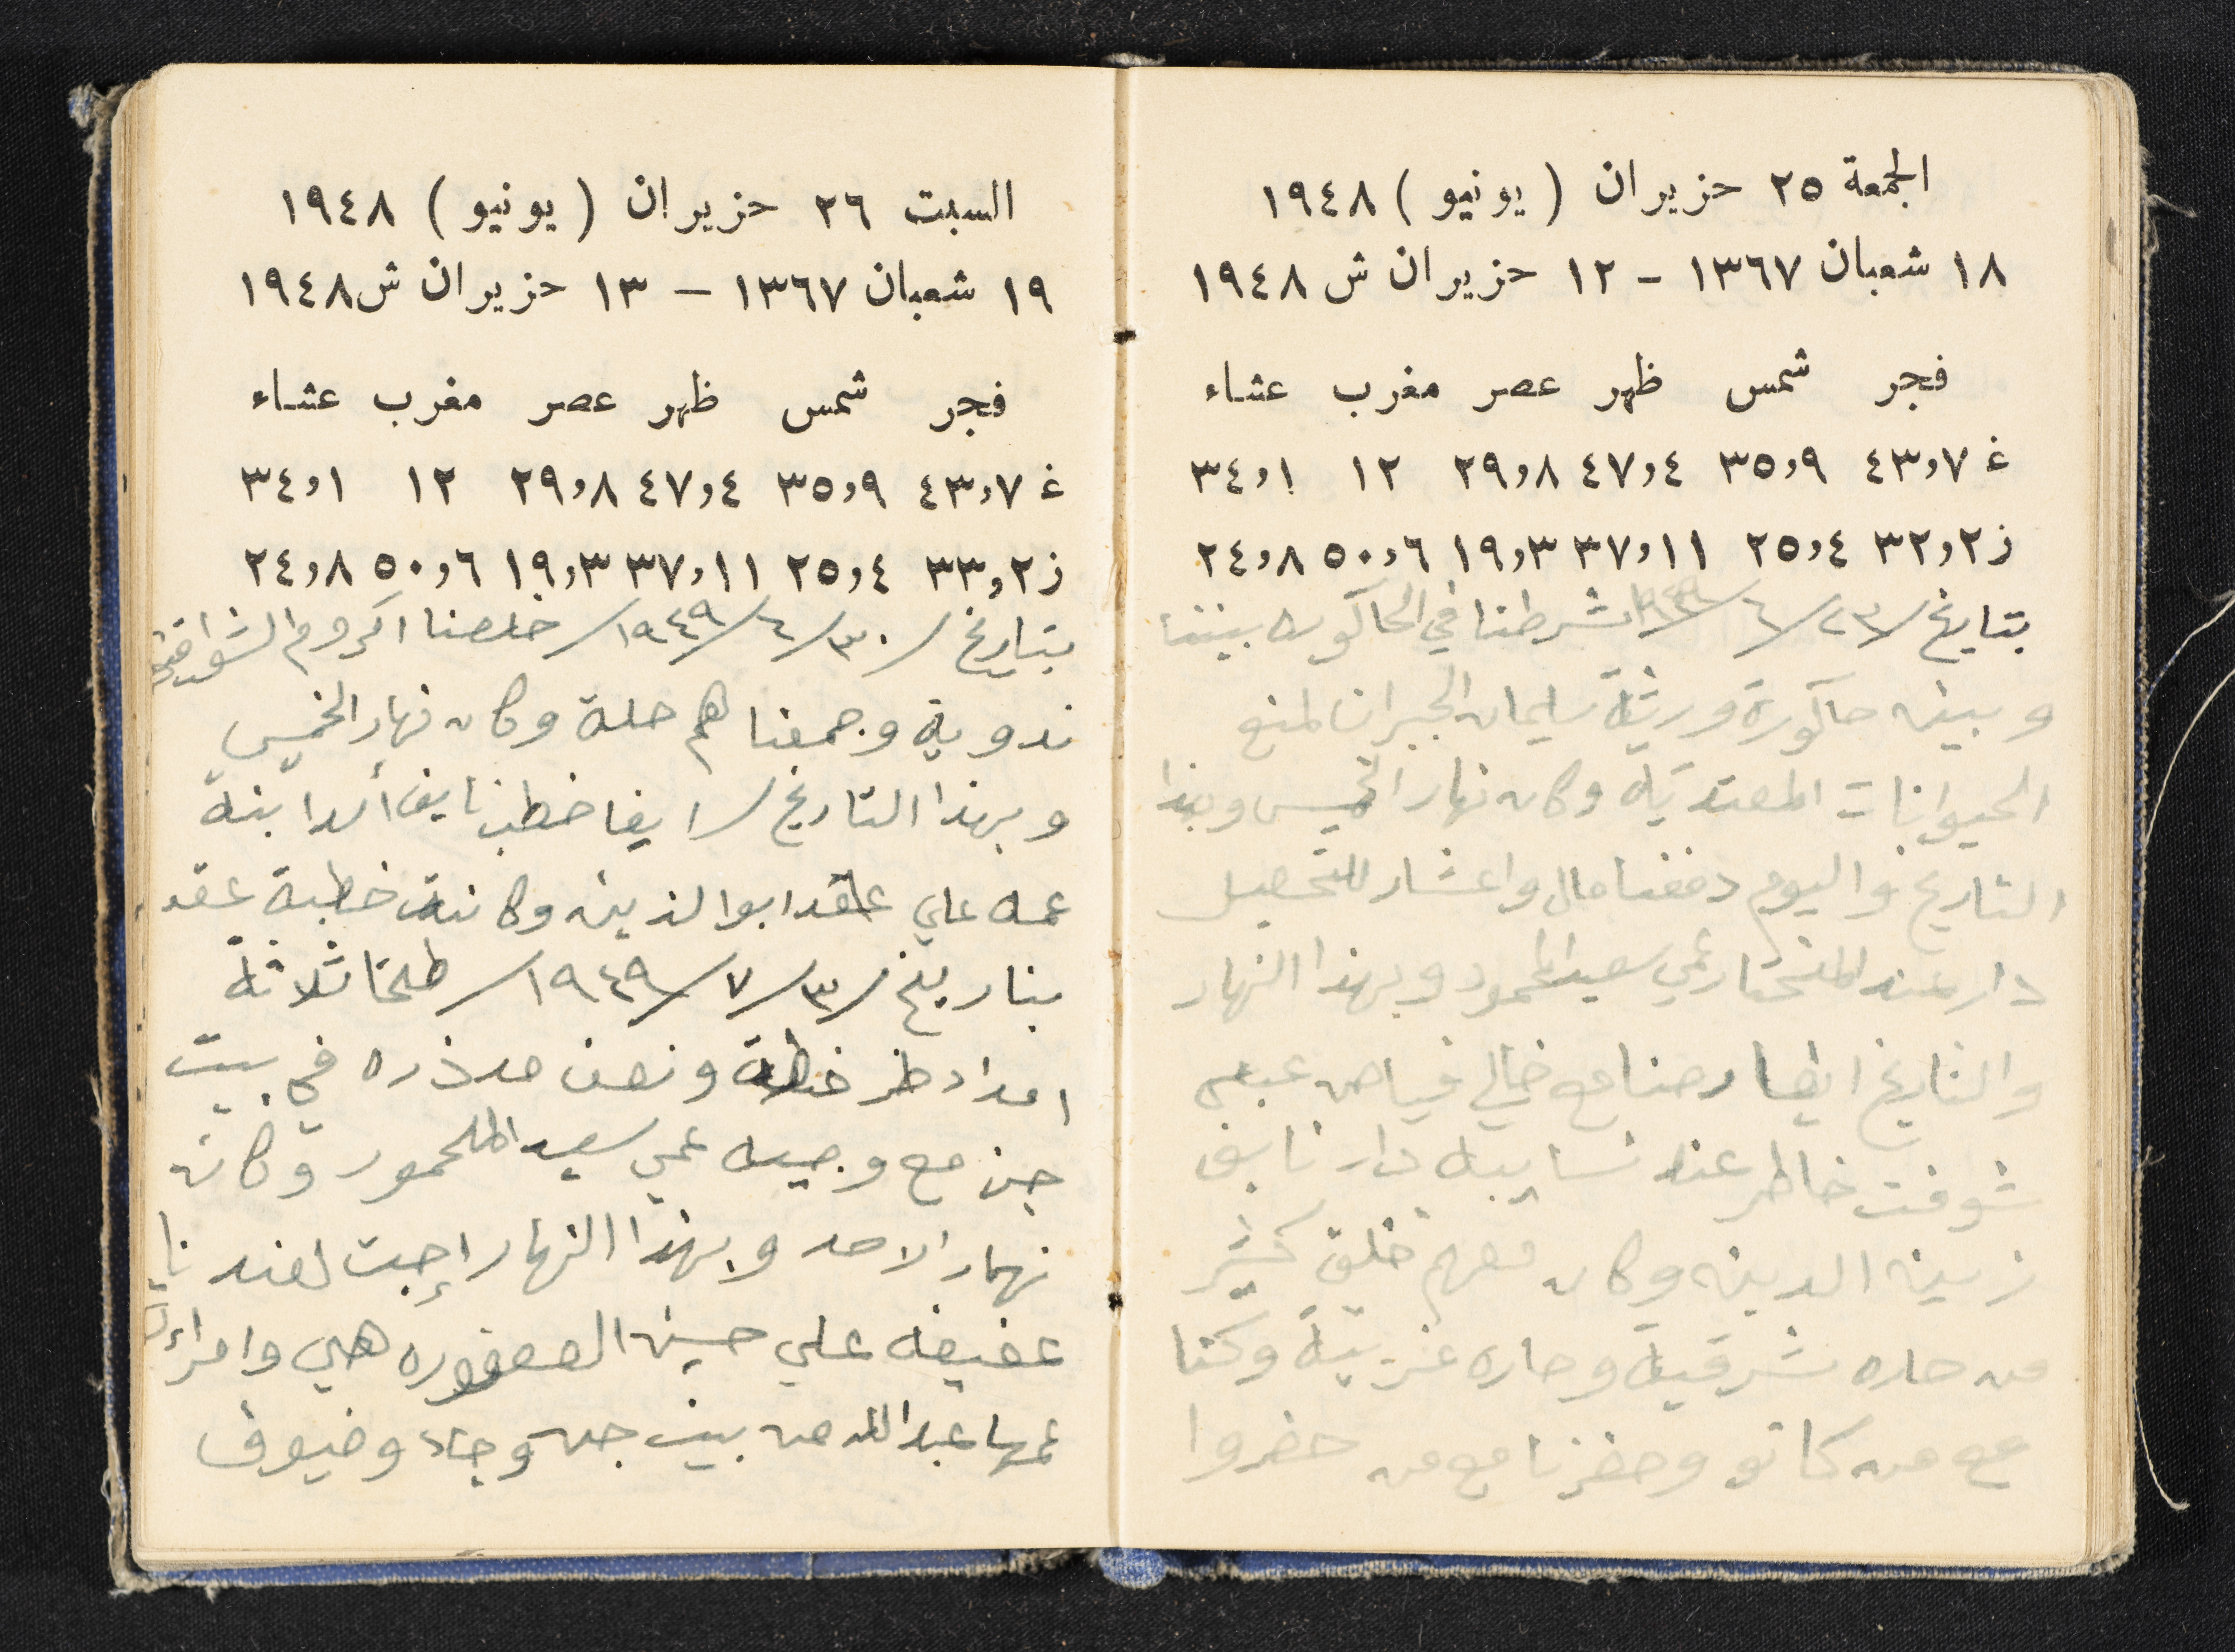 الجمعة ٢٥ حزيران (يونيو) ١٩٤٨
١٨ شعبان ١٣٦٧ - ١٢ حزيران ش ١٩٤٨
فجر شمس ظهر عصر مغرب عشاء
غ ٤٣,٧ ٣٥,٩ ٤٧,٤ ٢٩,٨ ١٢ ٣٤,١
ز ٣٢,٢ ٢٥,٤ ٣٧,١١ ١٩,٣ ٥٠,٦ ٢٤,٨
بتايخ /٢٣/٦/ شرطنا في الحاكوره بيننا
وبين حاكورة ورثة سليمان الجبران لمنع
الحيوانات المعتديّة وكان نهار الخميس وبهذا
التاريخ واليوم دفعنا مال واعشار للتحصيل
دار عند المختار عمي سعيد المحمود وبهذا النهار
والتاريخ ايضا رحنا مع خالي فياض
شوفت خاطر عند نسايبه دار نايف
زين الدين وكان معهم خلق كثير
من حاره شرقية وحاره غربيّة وكنا
مع من كانو وحضرنا مع من حضروا
السبت ٢٦ حزيران (يونيو) ١٩٤٨
١٩ شعبان ١٣٦٧ - ١٣ حزيران ش ١٩٤٨
فجر شمس ظهر عصر مغرب عشاء
غ ٤٣,٧ ٣٥,٩ ٤٧,٤ ٢٩,٨ ١٢ ٣٤,١
ز ٣٣,٢ ٢٥,٤ ٣٧,١١ ١٩,٣ ٥٠,٦ ٢٤,٨
بتاريخ /٣٠/٦/١٩٤٩/ خلصنا اكروم
وجمعنا هم حلة وكان نهار الخميس
وبهذا التاريخ / ايضا خطب نايف ابنة
عمه علي وكانت خطبة عقد
بتاريخ /٣/٧/١٩٤٩/ طلحنا ثلاثة
امداد حنطة ونصف مد ذره في بيت
جن مع وجيه عمي سعيد المحمود وكان
نهار الاحد وبهذا النهار إجت لعند نا
عفيفه علي حسين هي وامرأة
عمها عبدالله من بيت جن وجاء وضيوف